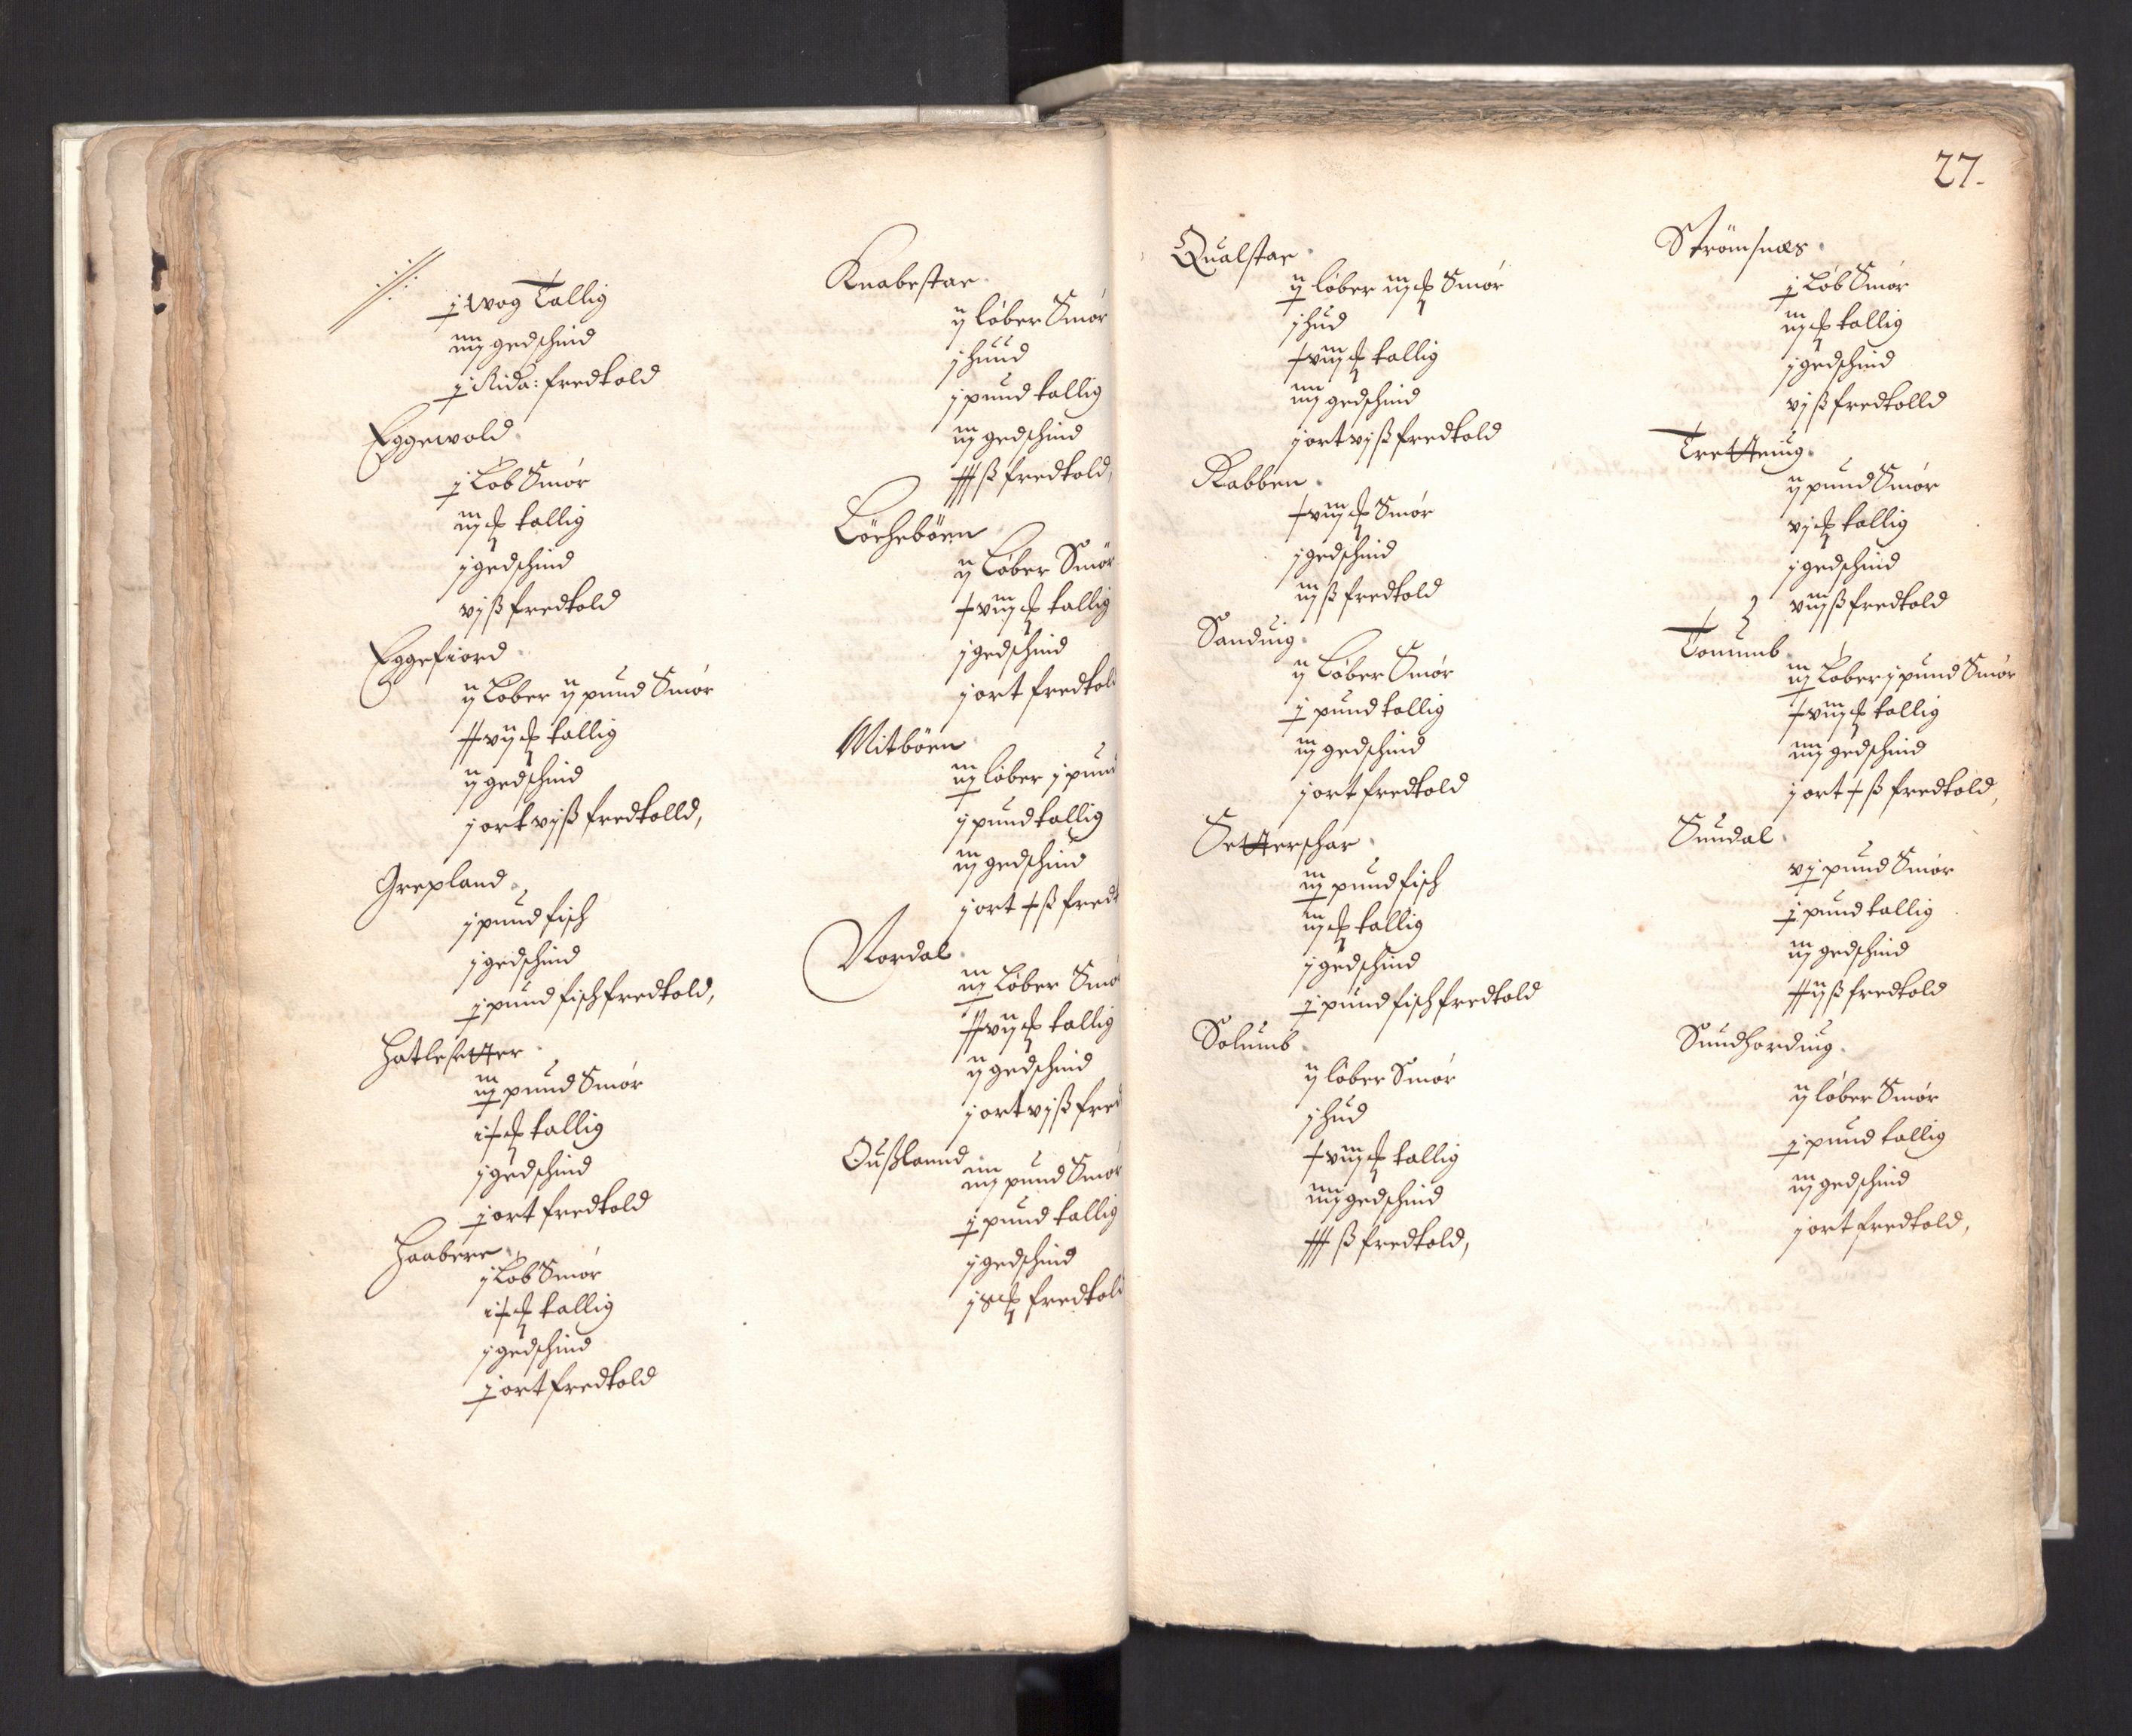 j wog Tallig
iiij gedschind
j Rida: fredtold
Eggewold.
j Løb Smør
iij ℔ tallig
j gedschind
vj ß fredtold
Eggefiord.
ij Løber ij pund Smør
xxvij ℔ tallig
ij gedschind
j ort vj ß fredtolld,
Grepland.
j pund fisch
j gedschind
j pund fisch fredtold,
Hatlesetter.
iij pund Smør
ix ℔ tallig
j gedschind
j ort fredtold
Haabere.
j Løb Smør
ix ℔ tallig
j gedschind
j ort fredtold
Knabestar.
ij løber Smør
j huud
j pund tallig
iij gedschind
xxx ß fredtold,
Löchebörn
ij Løber Smør
xviij ℔ tallig
j gedschind
j ort fredtold
Mitbörn.
iij løber j pund
j pund tallig
iij gedschind
j ort x ß fredt
Nordal.
iij Løber Smø
xxvij ℔ tallig
ij gedschind
j ort vj ß fred
Oußlannd
iiij pund Smør
j pund tallig
j gedschind
fredtold
27.
Qualstar.
ij løber iij ℔ Smør
j hud
xviij ℔ tallig
iiij gedschind
j ort vj ß fredtold
Rabben.
xviij ℔ Smør
j gedschind
iij ß fredtold
Sanduig.
ij Løber Smør
j pund tallig
iij gedschind
j ort fredtold
Setterschar.
iij pund fisch
iij ℔ tallig
j gedschind
j pund fisch fredtold
Solumb.
ij løber Smør
j hud
xviij ℔ tallig
iiij gedschind
xxx ß fredtold,
Strömsnæs.
j Løb Smør
iij ℔ tallig
j gedschind
vj ß fredtolld
Tretteuig.
ij pund Smør
vj ℔ tallig
j gedschind
viij ß fredtold
Tonumb.
iij Løber j pund Smør
xviij ℔ tallig
iiij gedschind
j ort x ß fredtold,
Sundal.
vj pund Smør
j pund tallig
iij gedschind
xxij ß fredtold
Sundhorduig.
ij løber Smør
j pund tallig
iij gedschind
j ort fredtold,